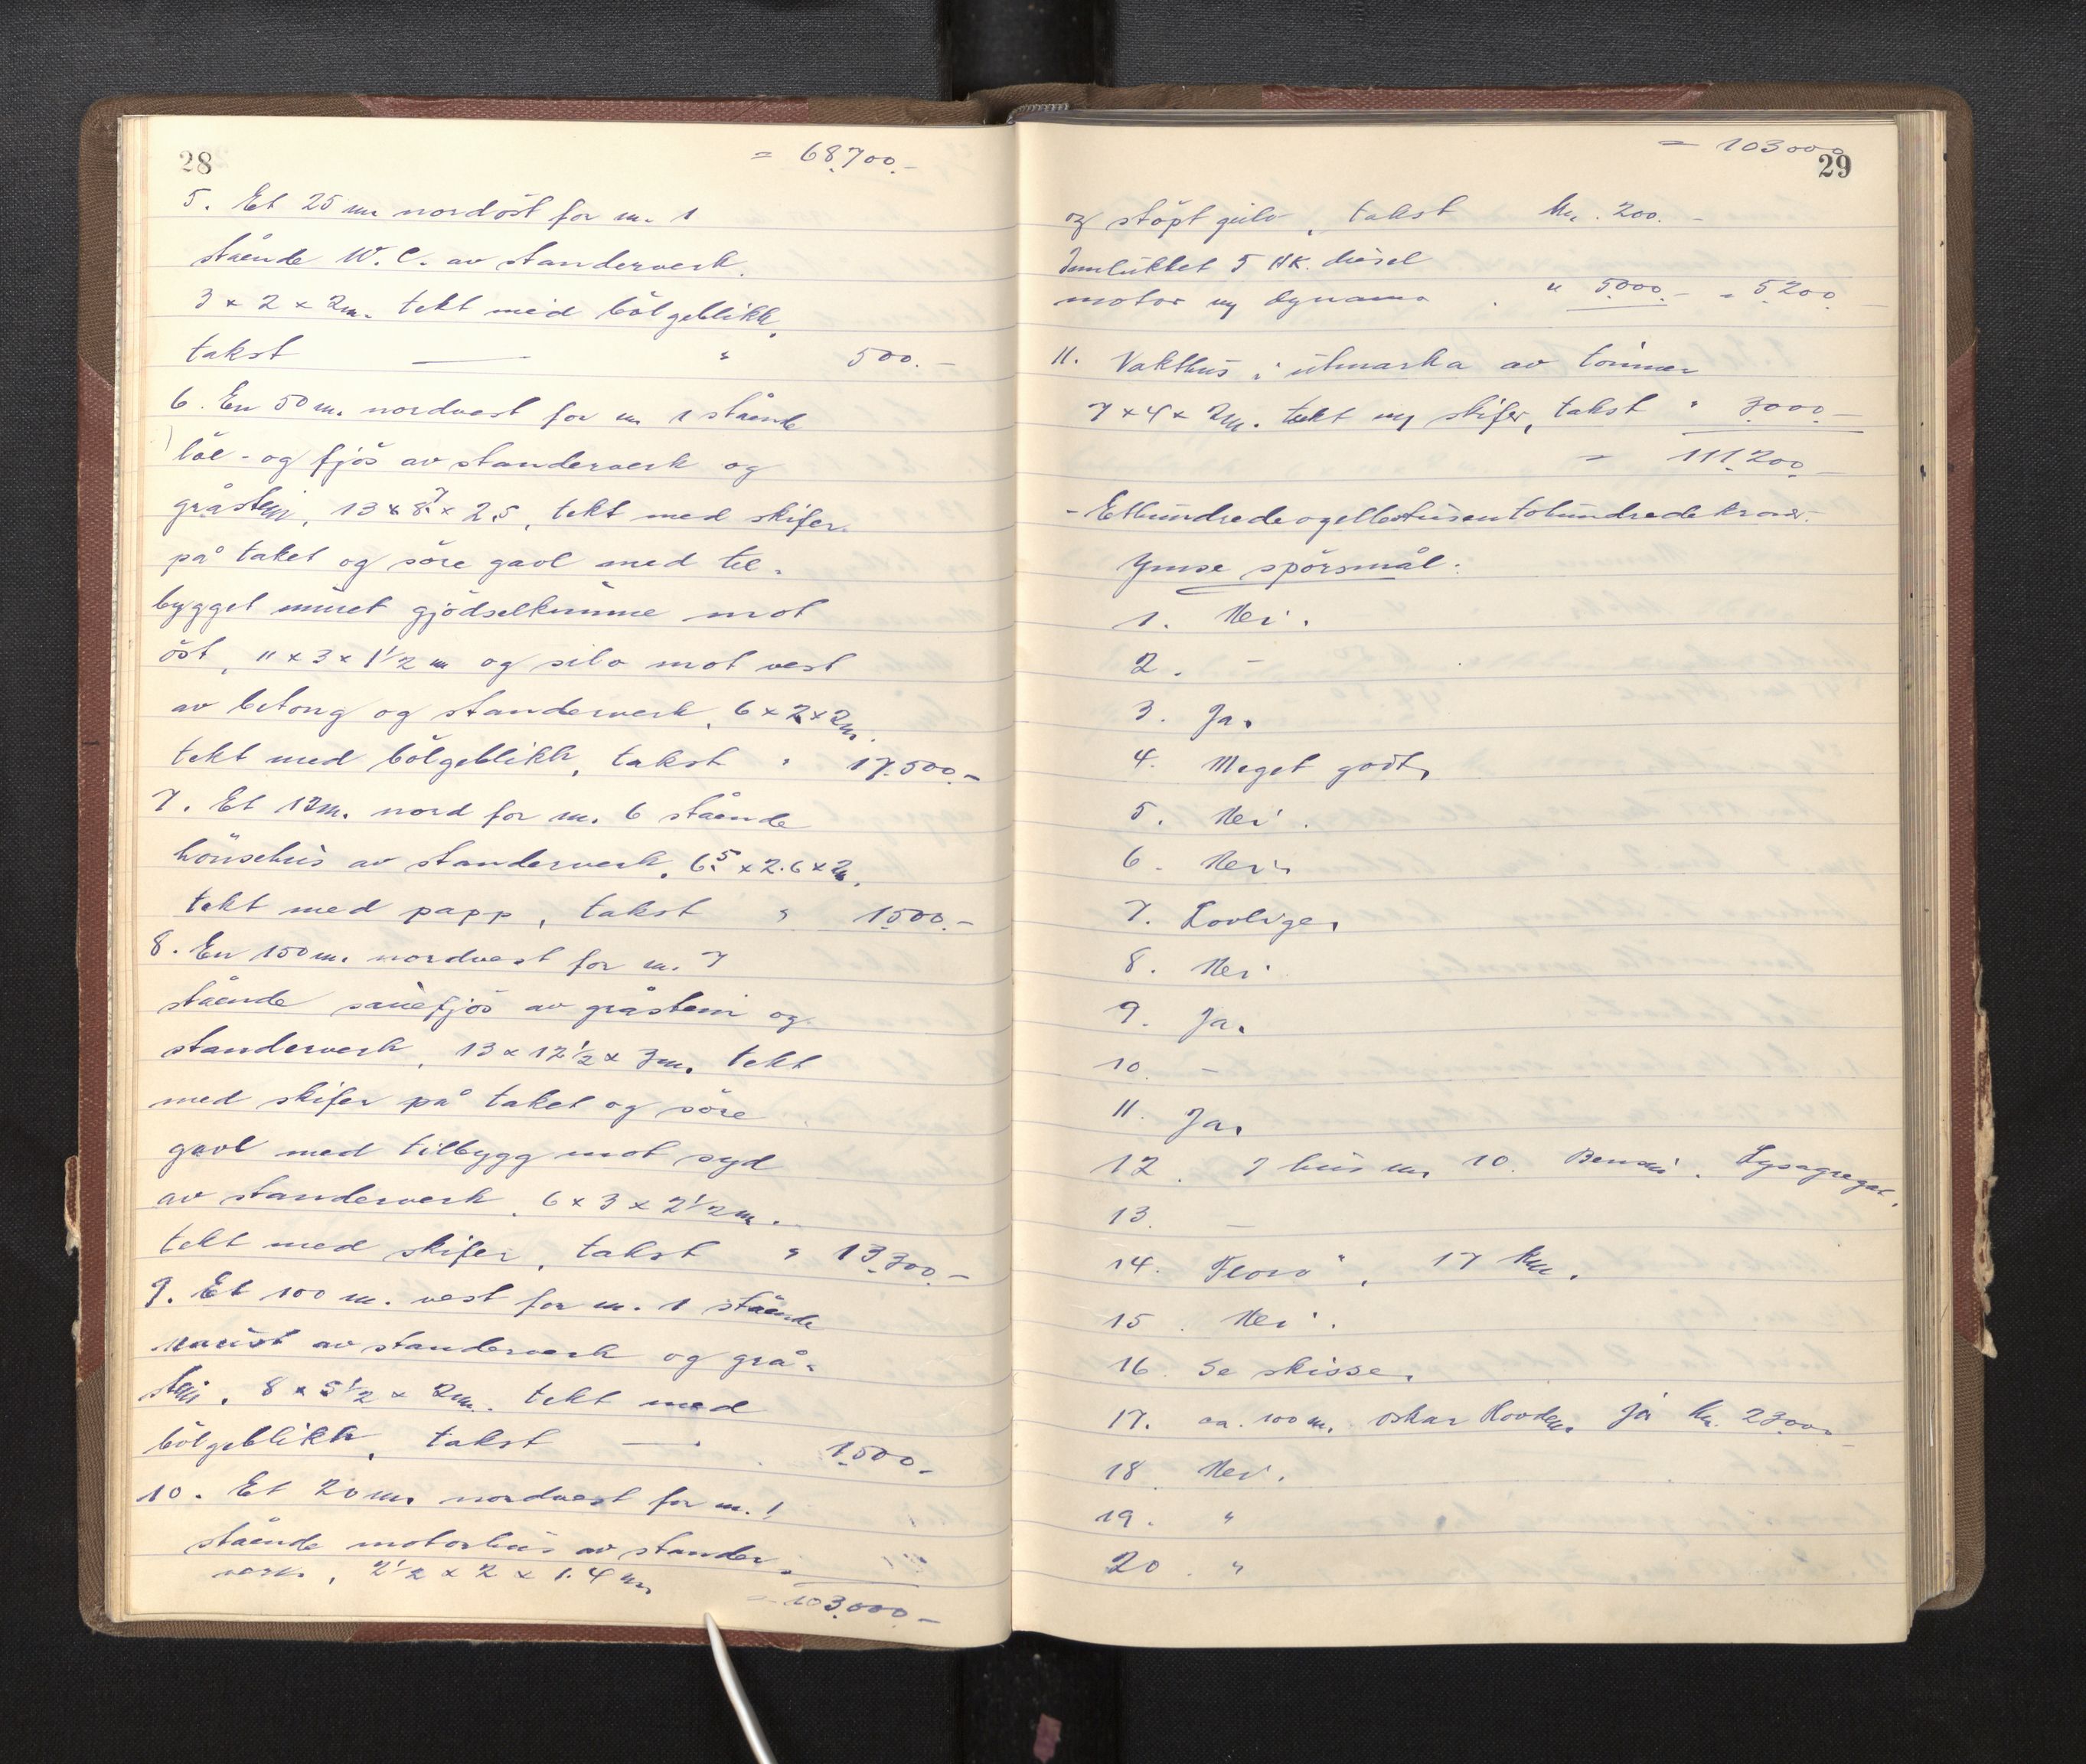 28
= 68.700.-
5. Et 25 m. nordöst for m. 1
stående W.C. av standerverk.
3 x 2 x 2m. tekt med bölgeblikk,
takst — " 500.-
6. En 50 m. nordvest for m. 1 stående
löe- og fjös av standerverk og
gråstein, 13 x 8.7 x 2.5, tekt med skifer
på taket og söre gavl med til-
bygget muret gjödselkumme mot
öst, 11 x 3 x 1 1/2 m og silo mot vest
av betong og standerverk, 6 x 2 x 2m.
tekt med bölgeblikk, takst " 17.500.-
7. Et 12m. nord for m. 6 stående
hönsehus av standerverk, 6.5 x 2.6 x 2m.
tekt med papp, takst " 1500.-
8. En 150 m. nordvest for m. 7
stående sauefjös av gråstein og
standerverk, 13 x 12 1/2 x 3m. tekt
med skifer på taket og söre
gavl med tilbygg mot syd
av standerverk. 6 x 3 x 2 1/2m.
tekt med skifer, takst " 13.300.-
9. Et 100 m. vest for m. 1 stående
naust av standerverk og grå-
stein, 8 x 5 1/2 x 2m. tekt med
bölgeblikk, takst — " 1.500.-
10. Et 20 m. nordvest for m. 1
stående motorhus av stander-
verk, 2 1/2 x 2 x 1.4 m
= 103.000-
= 103000
29
og stöpt gulv, takst kr. 200.-
Innlukket 5 HK. diesel
motor m/ dynamo . " 5.000.- = 5.200
11. Vakthus i utmarka av tömmer
7 x 4 x 2m. tekt m/ skifer, takst " 3000-
= 111.200-
- Etthundredeogellevetusentohundrede kroner.
Ymse spörsmål.
1. Nei.
2. -
3. Ja.
4. Meget godt,
5. Nei.
6. Nei.
7. Lovlige,
8. Nei
9. Ja.
10. -
11. Ja,
12. I hus m. 10. Bensin. Lysagregat.
13. -
14. Florö", 17 km.
15. Nei.
16. Se skisse.
17. ca. 100 m. Oskar Hovden. Ja kr. 2300-
18. Nei.
19. "
20. "